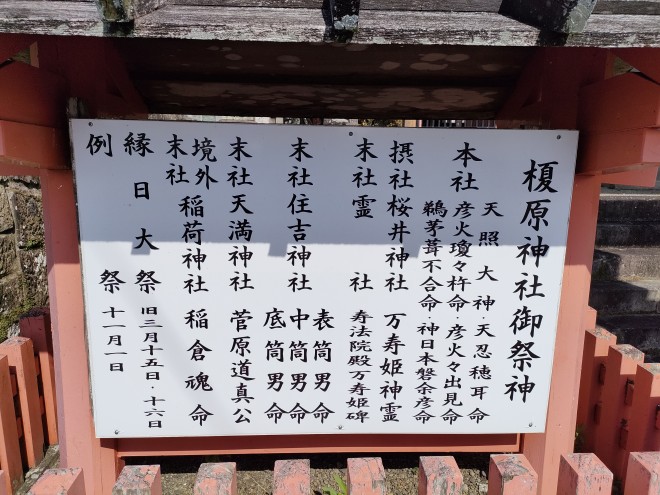 榎原神社御祭神
本社 天照大神・天忍穂耳命
彦火瓊々杵命・彦火々出見命
鵜茅葺不合命・神日本磐余彦命
摂社桜井神社 万寿姫神霊
末社霊社 寿法院殿万寿姫碑
末社住吉神社 表筒男命
中筒男命
底筒男命
末社天満神社 菅原道真公
境外末社 稲荷神社 稲倉魂命
縁日大祭 旧三月十五日・十六日
例祭 十一月一日